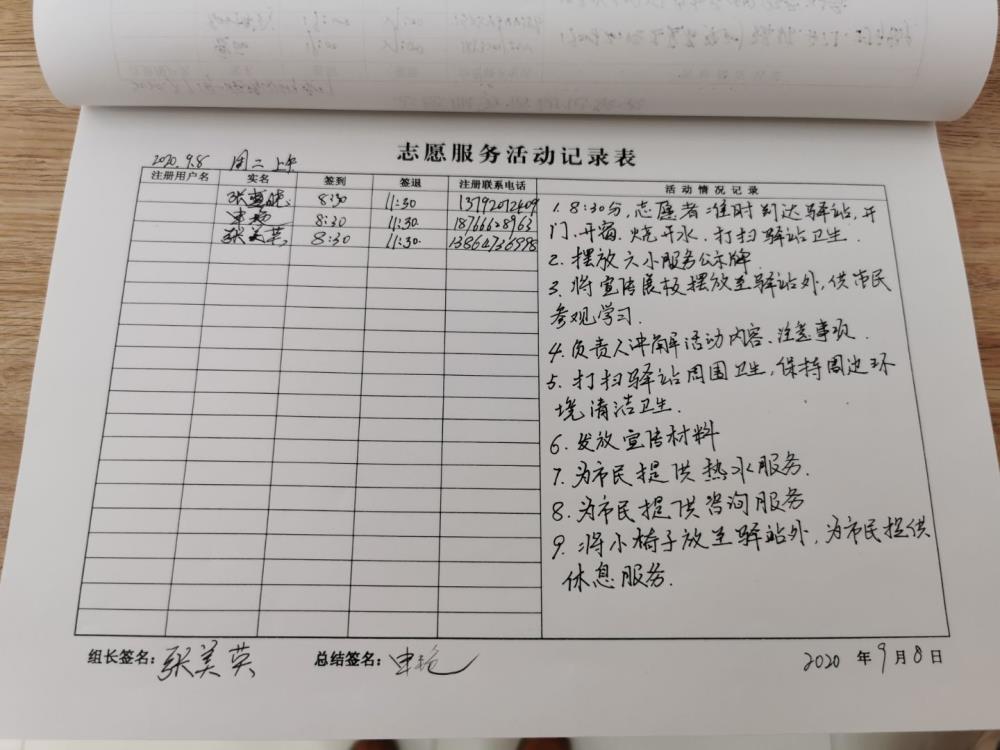 志愿服务活动记录表
2020.9.8 周二上午
注册用户名 实名 签到 签退 注册联系电话 活动情况记录
8:30 11:30 13792012409
申艳 8:30 11:30 18766628963
张美英 8:30 11:30 13864736998
1. 8:30分,志愿者准时到达驿站,开
门、开窗、烧开水、打扫驿站卫生.
2. 摆放六小服务公示牌.
3. 将宣传展板摆放至驿站外,供市民
参观学习.
4. 负责人讲解活动内容、注意事项.
5. 打扫驿站周围卫生,保持周边环
境清洁卫生.
6. 发放宣传材料
7. 为市民提供热水服务.
8. 为市民提供咨询服务
9. 将小椅子放至驿站外,为市民提供
休息服务.
组长签名:张美英 总结签名:申艳 2020年9月8日